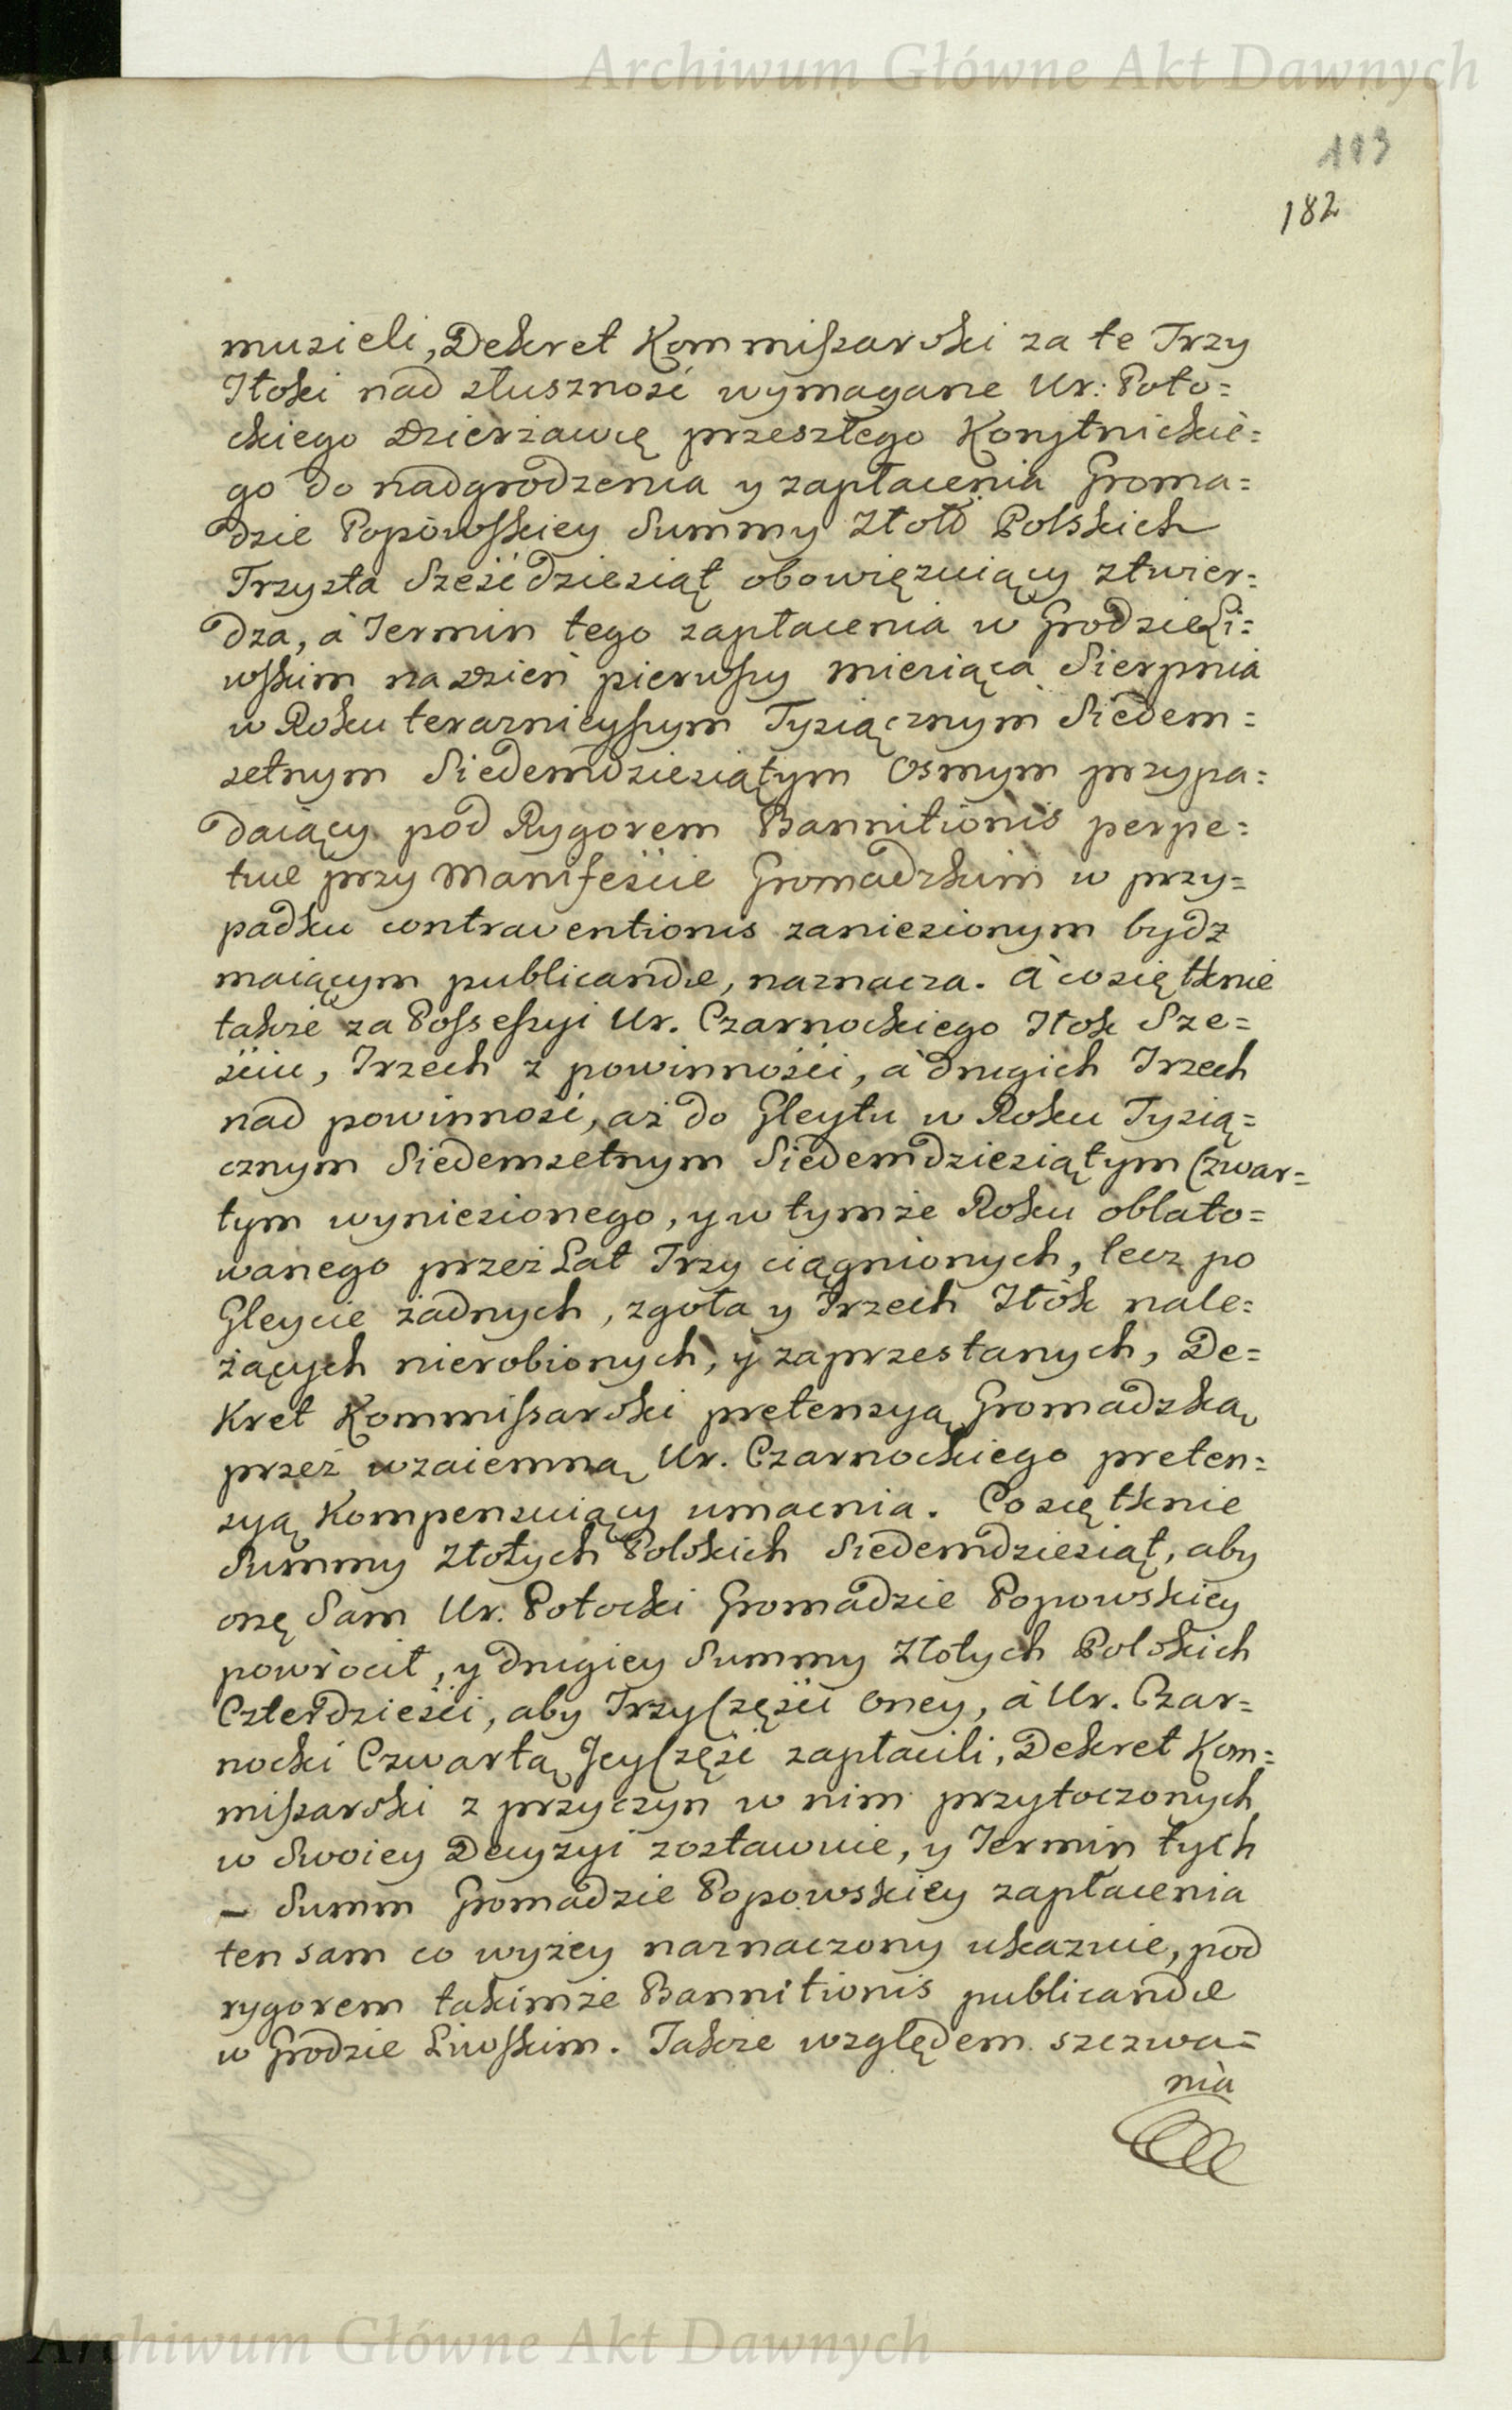 Archiwum Główne Akt Dawnych
182
musieli, Dekret Kommissarski za te Trzy
Tłoki nad słuszność wymagane Ur: Poto=
ckiego Dzierżawcę przeszłego Konytnickie=
go do nadgrodzenia y zapłacenia Groma=
dzie Popowskiey Summy Złotł Polskich
Trzysta Sześćdziesiąt obowięzuiący ztwier=
dza, à Termin tego zapłacenia w Grodzie Li=
wskim na Dzień pierwszy Miesiąca Sierpnia
w Roku teraznieyszym Tysiącznym Siedem=
setnym Siedemdziesiątym Osmym przypa=
daiący pod Rygorem Bannitionis perpe=
tuæ przy Manifeście Gromadzkim w przy=
padku contraventionis zaniesionym bydz
maiącym publicandæ, naznacza. à co się tknie
także za Possessyi Ur. Czarnockiego Tłok Sze=
ściu, Trzech z powinności, à drugich Trzech
nad powinność, aż do Gleytu w Roku Tysią=
cznym Siedemsetnym Siedemdziesiątym Czwar=
tym wyniesionego, y w tymże Roku oblato=
wanego przez Lat Trzy ciągnionych, lecz po
Gleycie żadnych, zgoła y Trzech Tłók nale=
żących nierobionych, y zaprzestanych, De=
kret Kommissarski pretensyą Gromadzką
przez wzaiemną Ur. Czarnockiego preten=
syą Kompensuiący umacnia. Co się tknie
Summy Złotych Polskich Siedemdziesiąt, aby
onę Sam Ur. Potocki Gromadzie Popowskiey
powrócił, y drugiey Summy Złotych Polskich
Czterdzieści, aby Trzy Części oney, à Ur. Czar=
nocki Czwartą Jey Część zapłacili, Dekret Kom=
missarski z przyczyn w nim przytoczonych
w Swoiey Decyzyi zostawuie, y Termin tych
– Summ Gromadzie Popowskiey zapłacenia
ten sam co wyżey naznaczony ukazuie, pod
rygorem takimże Bannitionis publicandæ
w Grodzie Liwskim. Także względem szczwa=
nia
Archiwum Główne Akt Dawnych